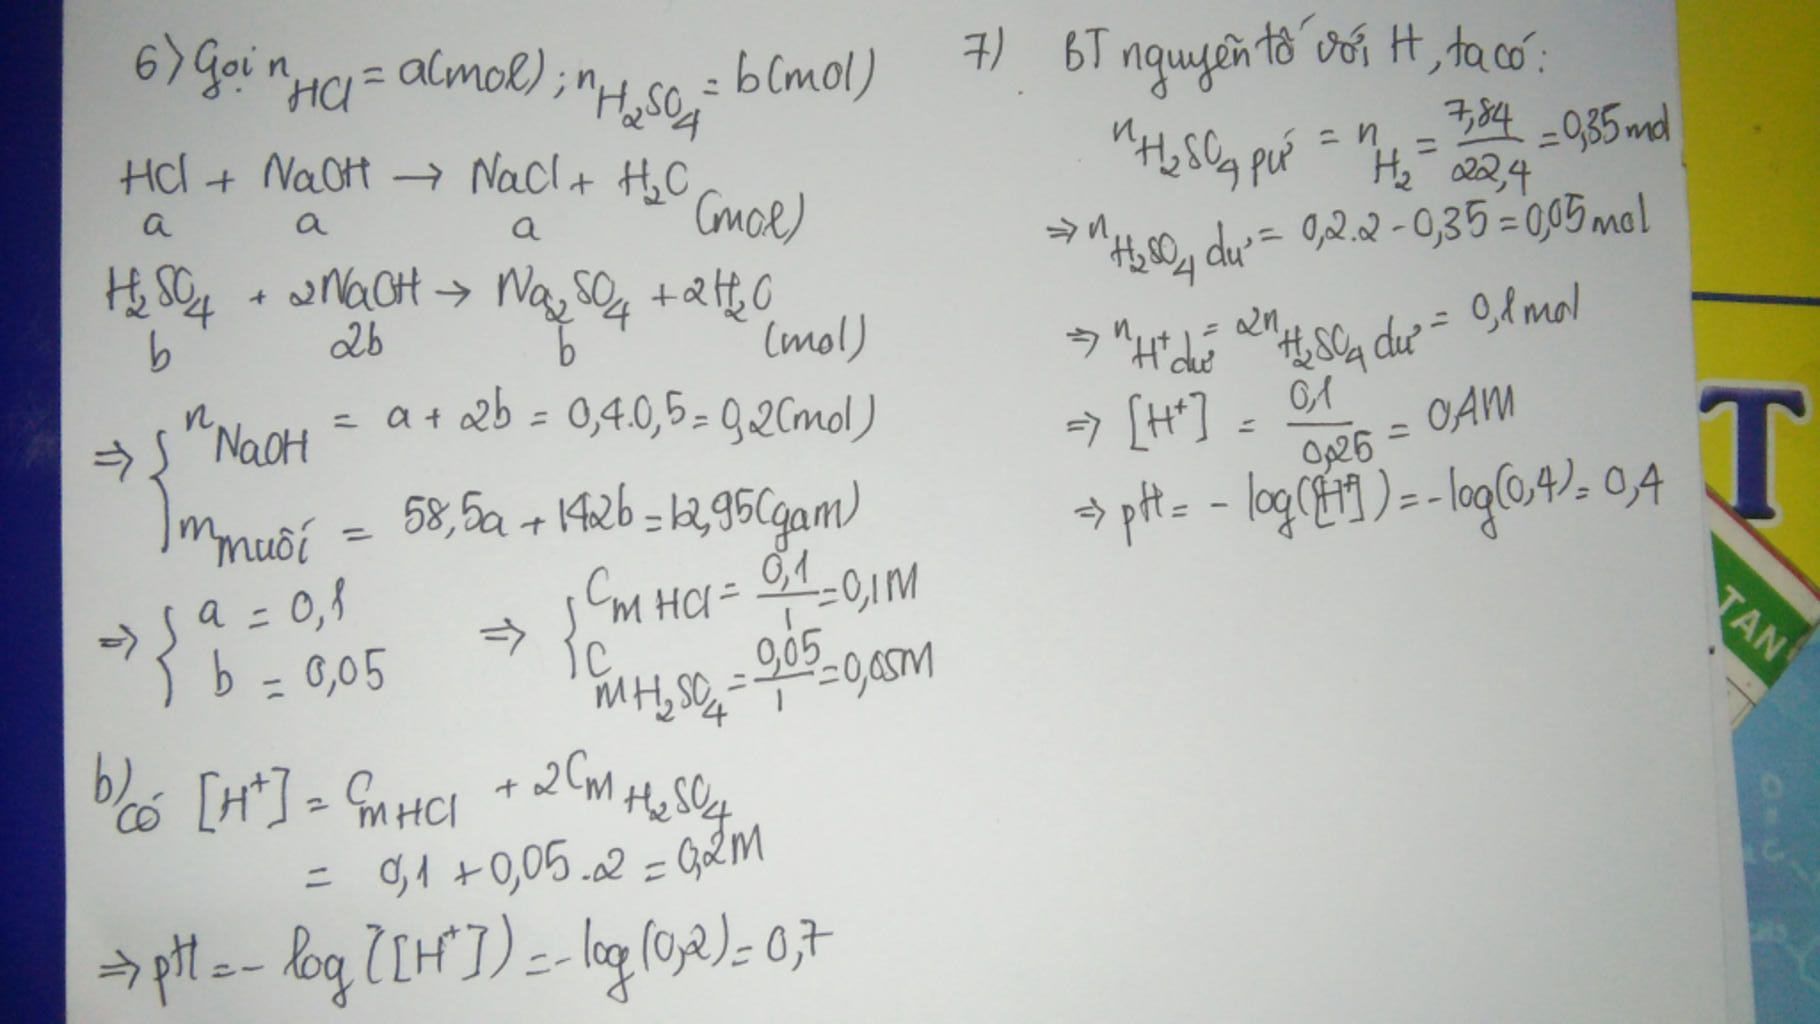 6) Gọi nHCl = a(mol); nH₂SO₄ = b(mol)
HCl + NaOH → NaCl + H₂O
a a a (mol)
H₂SO₄ + 2NaOH → Na₂SO₄ + 2H₂O
b 2b b (mol)
⇒ { nNaOH = a + 2b = 0,4.0,5 = 0,2(mol)
mmuối = 58,5a + 142b = 12,95(gam)
⇒ { a = 0,1
b = 0,05
⇒ { CM HCl = 0,1/1 = 0,1M
CM H₂SO₄ = 0,05/1 = 0,05M
b) có [H⁺] = CM HCl + 2CM H₂SO₄
= 0,1 + 0,05.2 = 0,2M
⇒ pH = - log([H⁺]) = - log(0,2) = 0,7
7) BT nguyên tố với H, ta có:
nH₂SO₄ pứ = nH₂ = 7,84/22,4 = 0,35 mol
⇒ nH₂SO₄ dư = 0,2.2 - 0,35 = 0,05 mol
⇒ nH⁺ dư = 2nH₂SO₄ dư = 0,1 mol
⇒ [H⁺] = 0,1/0,25 = 0,4M
⇒ pH = - log([H⁺]) = - log(0,4) = 0,4
T
TAN